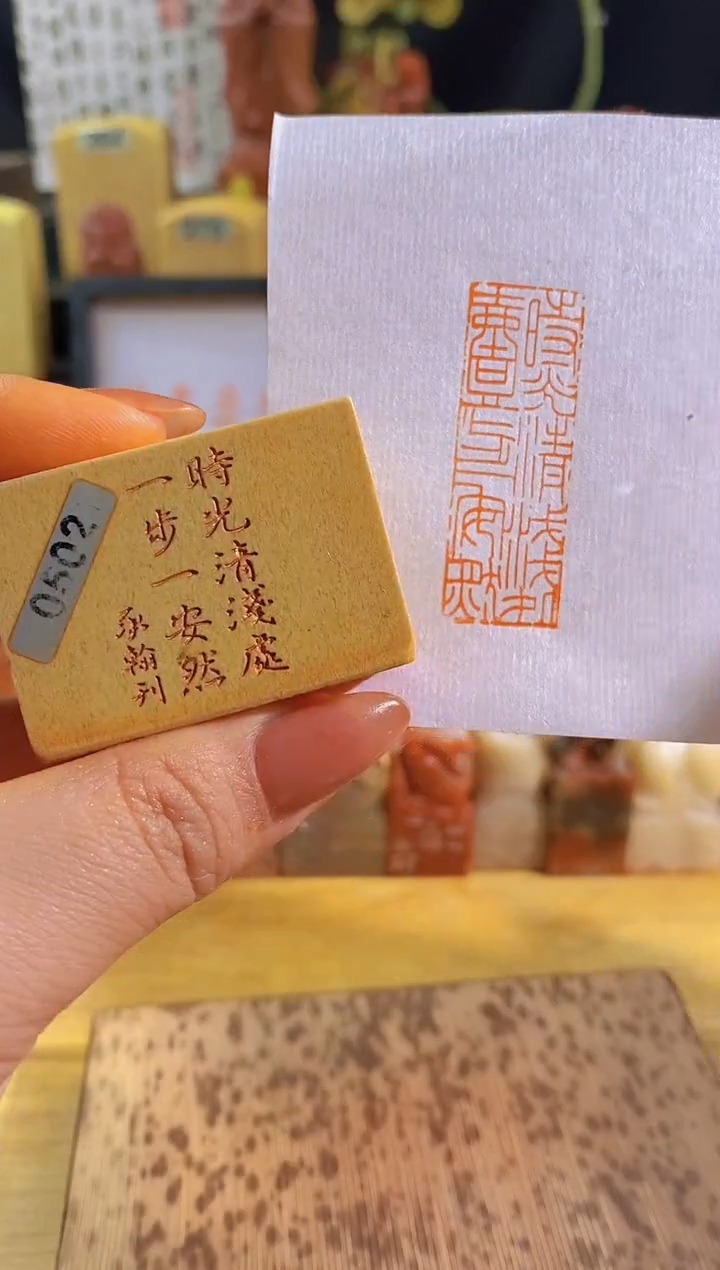 時光清淺處
一步一安然
翰刊
0502
時光清淺處
安然